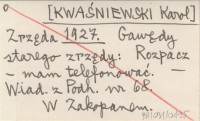 [KWAŚNIEWSKI Karol]
Zrzęda 1927. Gawędy
starego zrzędy: Rozpacz
— mam telefonować. —
Wiad. z Podh. nr 68.
W Zakopanem.